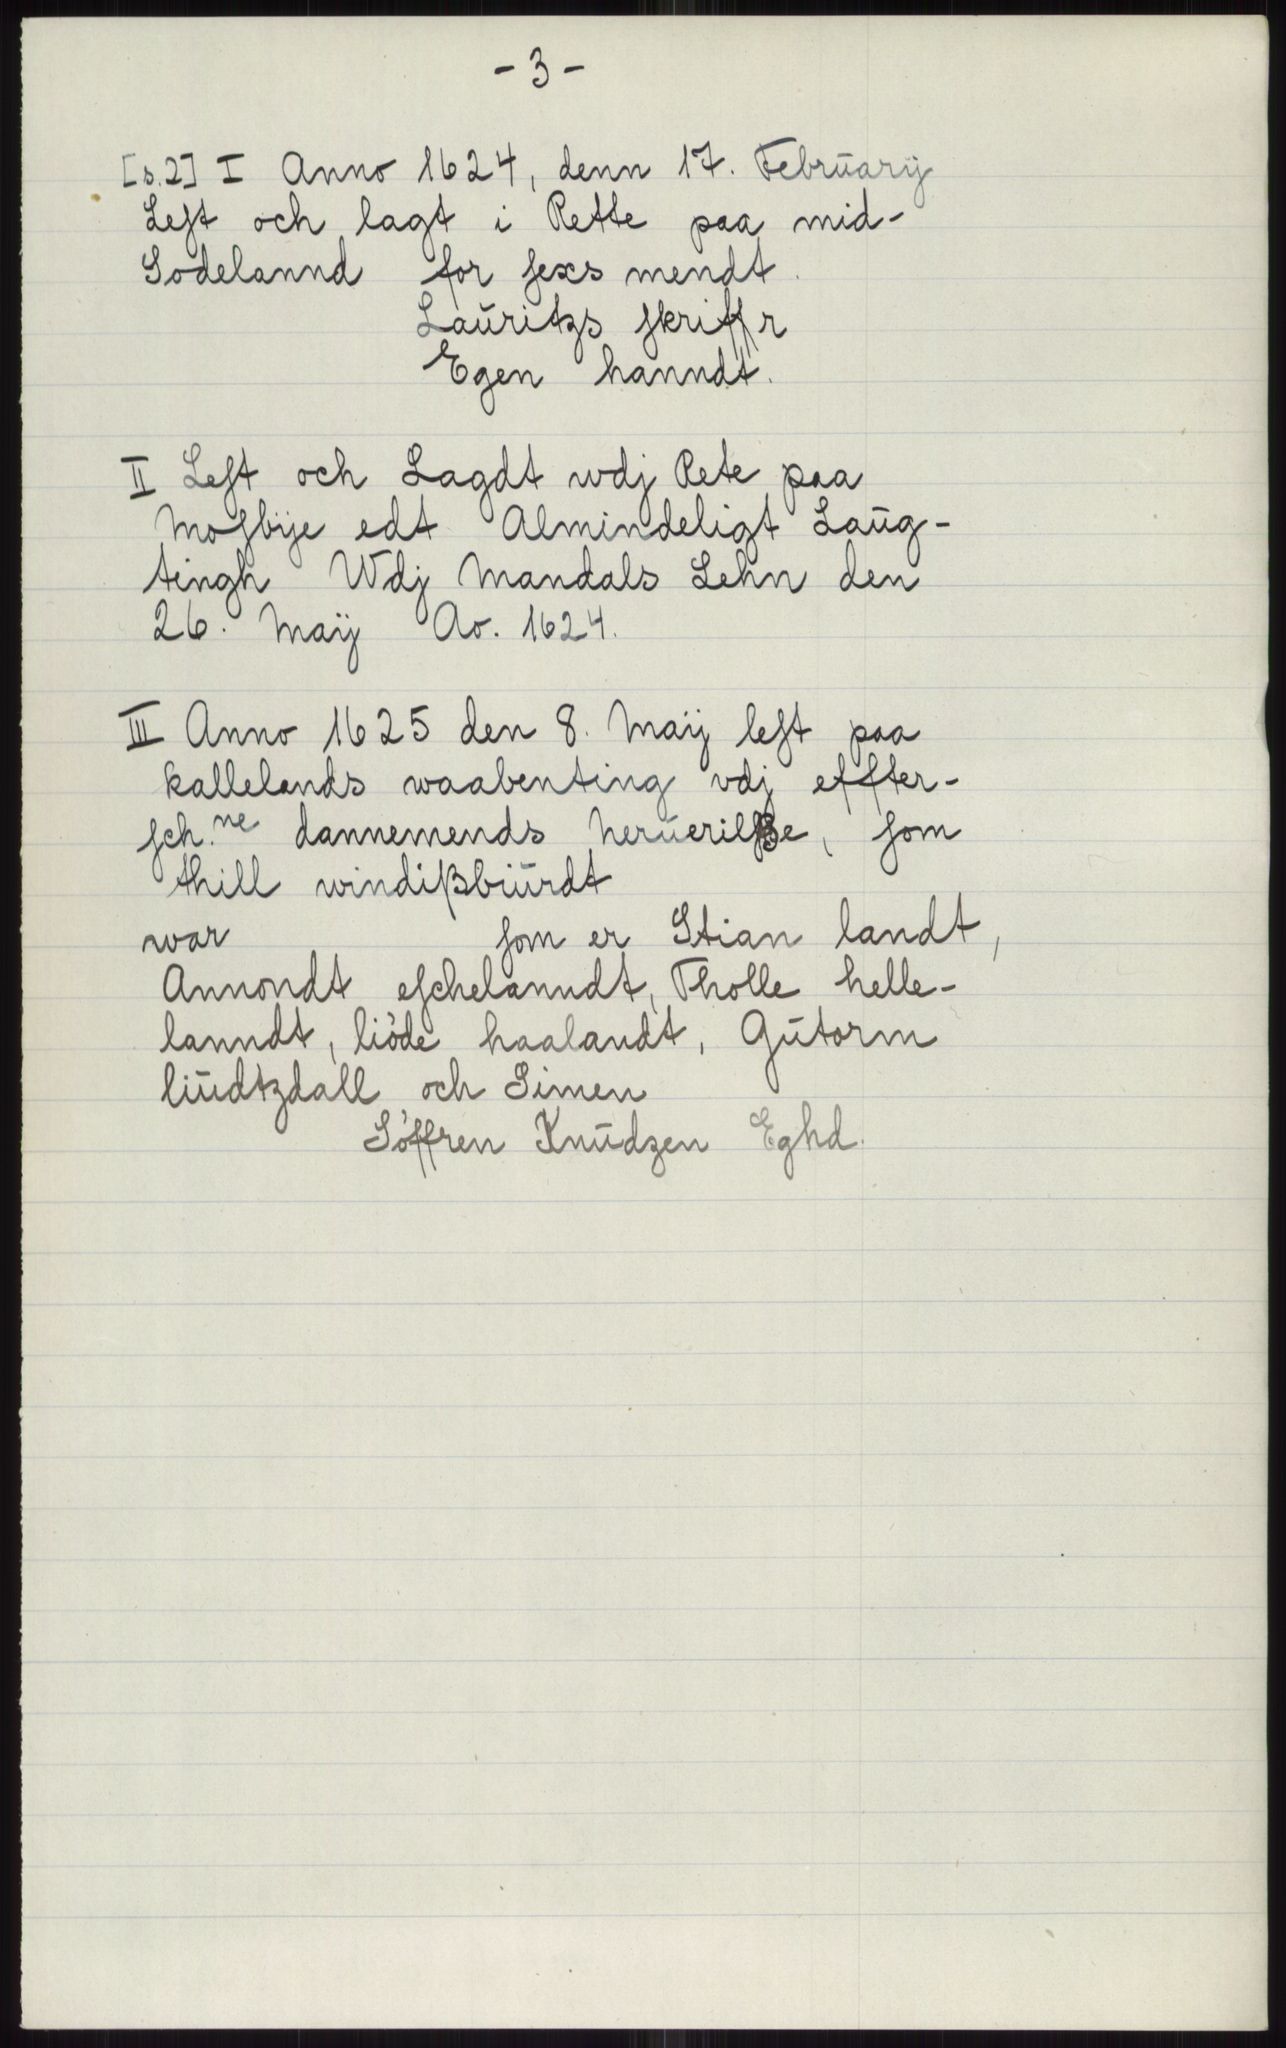 - 3 -
[s.2] I Anno 1624, denn 17. Februarÿ
Leſt och lagt i Rette paa mid-
Sodelannd for ſexs mendt.
Laūritzs ſkriffr
Egen hanndt.
II Leſt och Lagdt wdj Rete paa
Moſbÿe edt Almindeligt Laūg-
tingh Wdj Mandals Lehn den
26. Maÿ Ao. 1624.
III Anno 1625 den 8. Maÿ leſt paa
kallelands waabenting vdj effter-
ſch.ne dannemends herūerilße, ſom
thill windißbiūrdt
war ſom er Stian landt,
Annondt eſchelanndt, Tholle helle-
lanndt, liòde haalandt, Gūtorm
liūdtzdall och Simen
Sòffren Knūdzen Eghd.